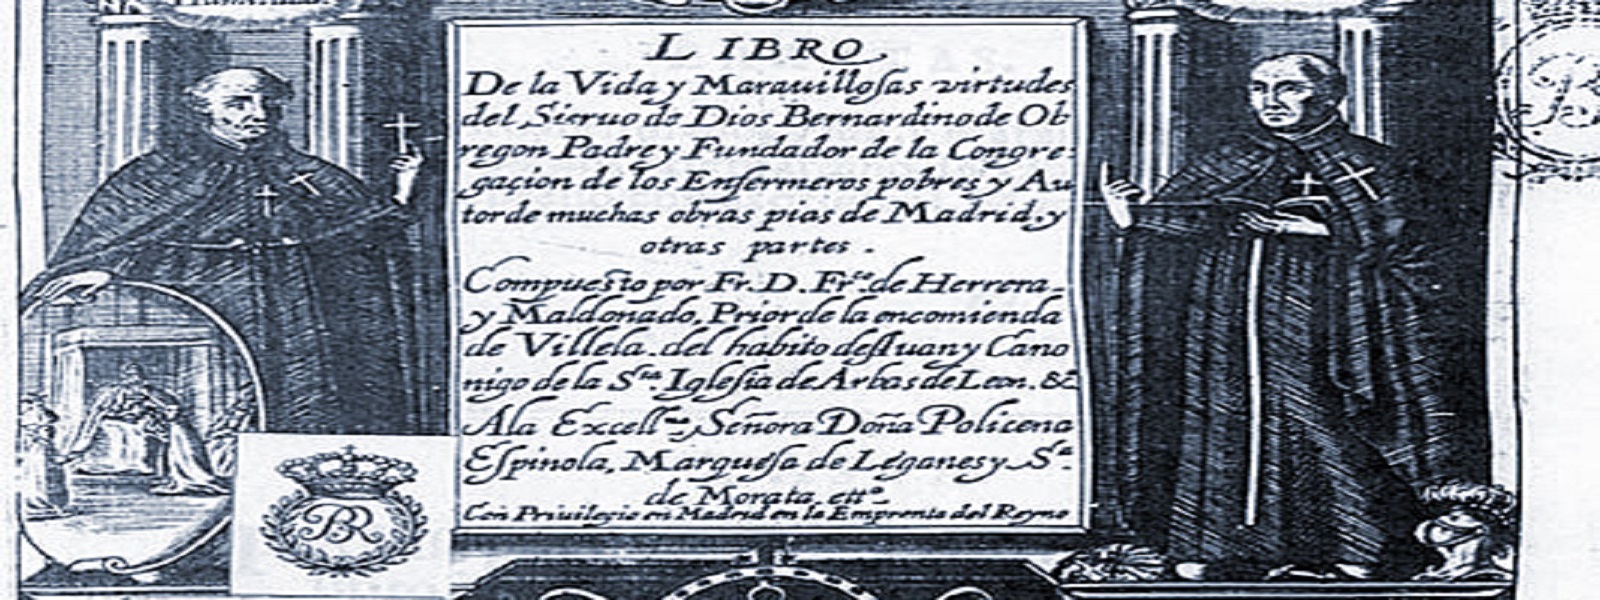 LIBRO
De la Vida y Marauillosas virtudes
del Sieruo de Dios Bernardino de Ob
regon Padre y Fundador de la Congre:
gaçion de los Enfermeros pobres y Au
tor de muchas obras pias de Madrid, y
otras partes.
Compuesto por Fr. D. Frco. de Herrera
y Maldonado, Prior de la encomienda
de Villela. del habito de S Iuan y Cano
nigo de la Sta Iglesia de Arbas de Leon. &c
Ala Excell.ma Señora Doña Policena
Espinola, Marquesa de Leganes y S.ª
de Morata. ett.ª
Con Priuilegio en Madrid en la Emprenta del Reyno
BR